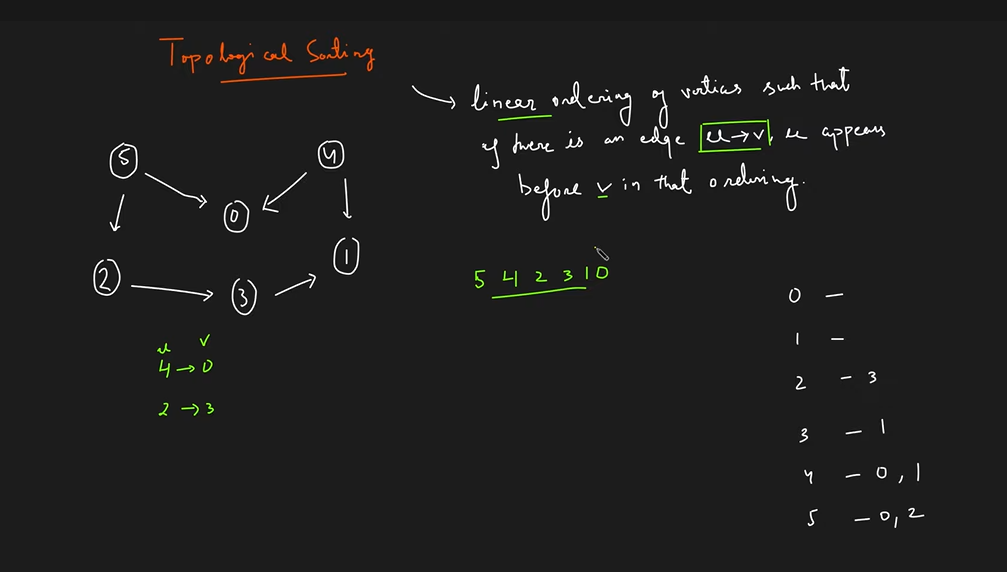 Topological Sorting
linear ordering of vertices such that
if there is an edge u → v, u appears
before v in that ordering.
5
4
0
1
2
3
5 4 2 3 1 0
u v
4 → 0
2 → 3
0 –
1 –
2 – 3
3 – 1
4 – 0, 1
5 – 0, 2